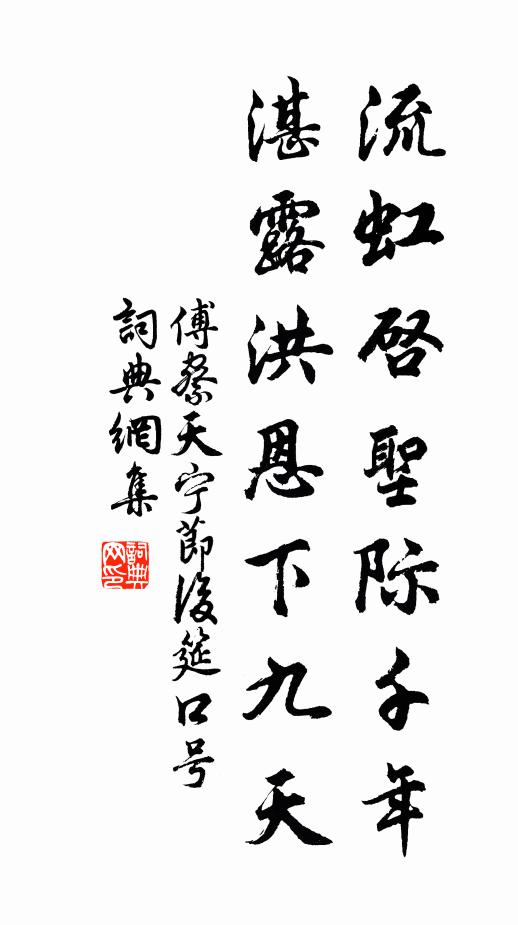 流虹啓聖际千年
湛露洪恩下九天
傅察天宁節後筵口号
詞典網集
詞典网印